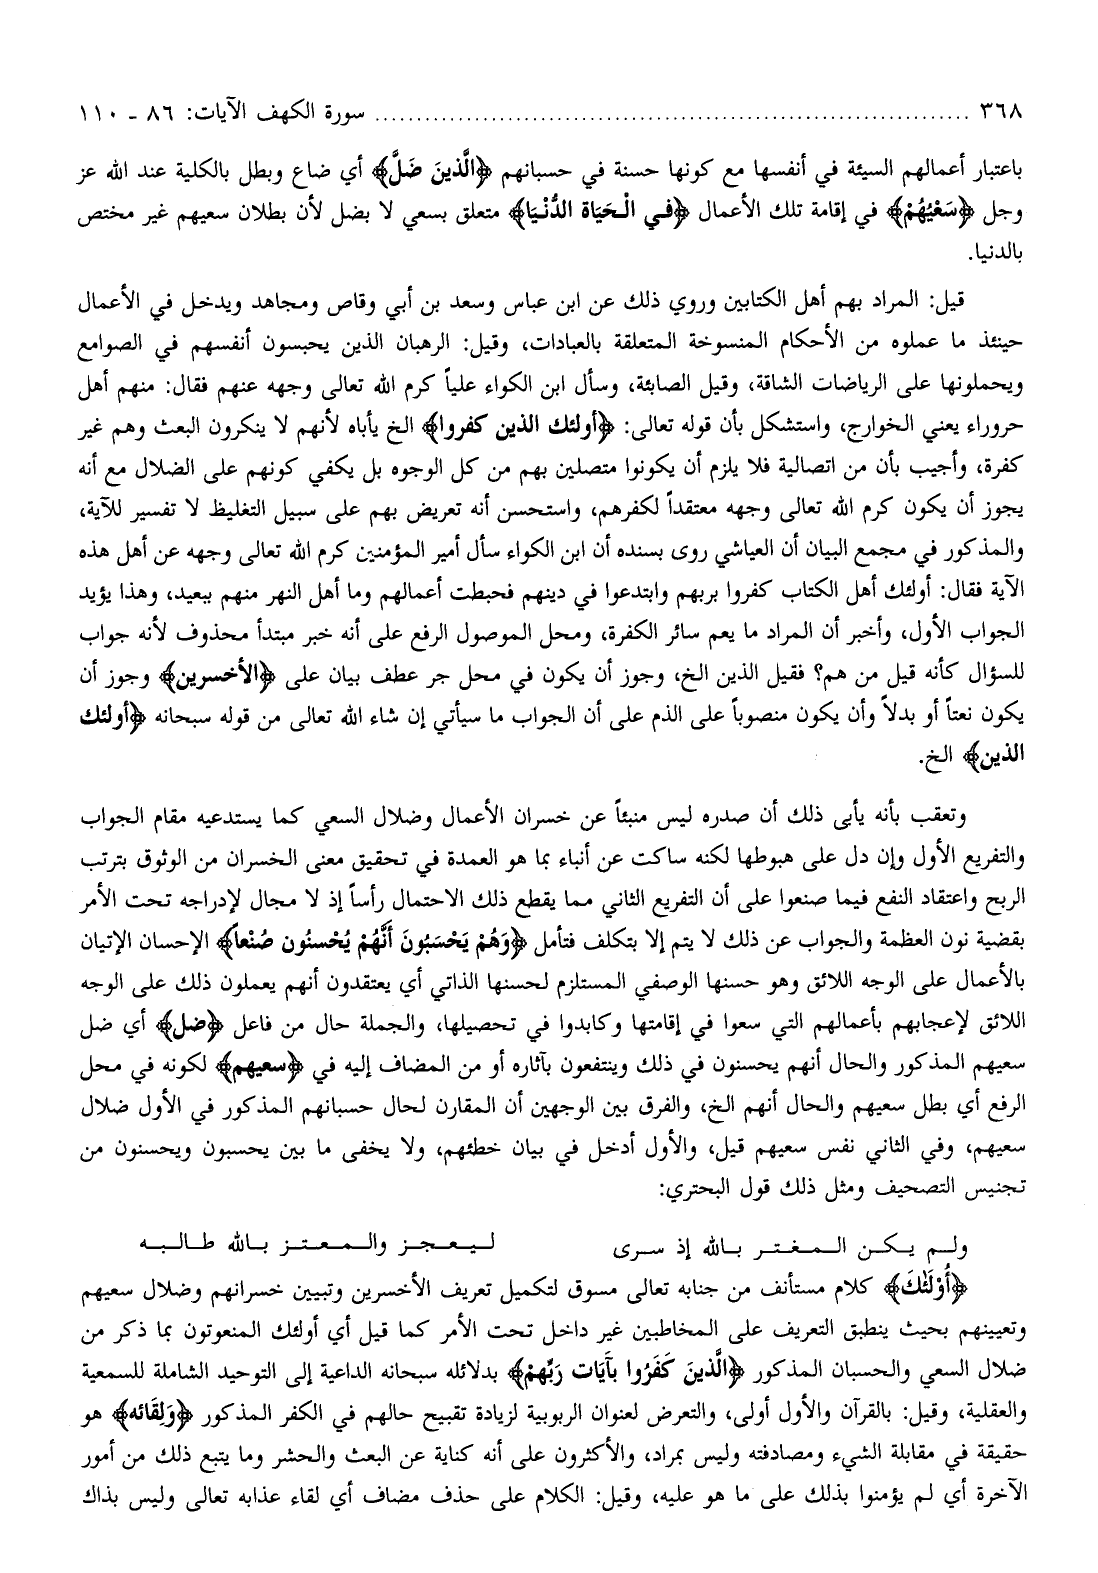 ٣٦٨ ........................................................................ سورة الكهف الآيات: ٨٦ - ١١٠
باعتبار أعمالهم السيئة في أنفسها مع كونها حسنة في حسبانهم ﴿الَّذينَ ضَلَّ﴾ أي ضاع وبطل بالكلية عند الله عز
وجل ﴿سَعْيُهُمْ﴾ في إقامة تلك الأعمال ﴿فـي الْـحَيَاة الدُّنْـيَا﴾ متعلق بسعي لا بضل لأن بطلان سعيهم غير مختص
بالدنيا.
قيل: المراد بهم أهل الكتابين وروي ذلك عن ابن عباس وسعد بن أبي وقاص ومجاهد ويدخل في الأعمال
حينئذ ما عملوه من الأحكام المنسوخة المتعلقة بالعبادات، وقيل: الرهبان الذين يحبسون أنفسهم في الصوامع
ويحملونها على الرياضات الشاقة، وقيل الصابئة، وسأل ابن الكواء علياً كرم الله تعالى وجهه عنهم فقال: منهم أهل
حروراء يعني الخوارج، واستشكل بأن قوله تعالى: ﴿أولئك الذين كفروا﴾ الخ يأباه لأنهم لا ينكرون البعث وهم غير
كفرة، وأجيب بأن من اتصالية فلا يلزم أن يكونوا متصلين بهم من كل الوجوه بل يكفي كونهم على الضلال مع أنه
يجوز أن يكون كرم الله تعالى وجهه معتقداً لكفرهم، واستحسن أنه تعريض بهم على سبيل التغليظ لا تفسير للآية،
والمذكور في مجمع البيان أن العياشي روى بسنده أن ابن الكواء سأل أمير المؤمنين كرم الله تعالى وجهه عن أهل هذه
الآية فقال: أولئك أهل الكتاب كفروا بربهم وابتدعوا في دينهم فحبطت أعمالهم وما أهل النهر منهم ببعيد، وهذا يؤيد
الجواب الأول، وأخبر أن المراد ما يعم سائر الكفرة، ومحل الموصول الرفع على أنه خبر مبتدأ محذوف لأنه جواب
للسؤال كأنه قيل من هم؟ فقيل الذين الخ، وجوز أن يكون في محل جر عطف بيان على ﴿الأخسرين﴾ وجوز أن
يكون نعتاً أو بدلاً وأن يكون منصوباً على الذم على أن الجواب ما سيأتي إن شاء الله تعالى من قوله سبحانه ﴿أولئك
الذين﴾ الخ.
وتعقب بأنه يأبى ذلك أن صدره ليس منبئاً عن خسران الأعمال وضلال السعي كما يستدعيه مقام الجواب
والتفريع الأول وإن دل على هبوطها لكنه ساكت عن أنباء بما هو العمدة في تحقيق معنى الخسران من الوثوق بترتب
الربح واعتقاد النفع فيما صنعوا على أن التفريع الثاني مما يقطع ذلك الاحتمال رأساً إذ لا مجال لإدراجه تحت الأمر
بقضية نون العظمة والجواب عن ذلك لا يتم إلا بتكلف فتأمل ﴿وَهُمْ يَحْسَبُونَ أَنَّهُمْ يُحْسنُون صُنْعاً﴾ الإحسان الإتيان
بالأعمال على الوجه اللائق وهو حسنها الوصفي المستلزم لحسنها الذاتي أي يعتقدون أنهم يعملون ذلك على الوجه
اللائق لإعجابهم بأعمالهم التي سعوا في إقامتها وكابدوا في تحصيلها، والجملة حال من فاعل ﴿ضل﴾ أي ضل
سعيهم المذكور والحال أنهم يحسنون في ذلك وينتفعون بآثاره أو من المضاف إليه في ﴿سعيهم﴾ لكونه في محل
الرفع أي بطل سعيهم والحال أنهم الخ، والفرق بين الوجهين أن المقارن لحال حسبانهم المذكور في الأول ضلال
سعيهم، وفي الثاني نفس سعيهم قيل، والأول أدخل في بيان خطئهم، ولا يخفى ما بين يحسبون ويحسنون من
تجنيس التصحيف ومثل ذلك قول البحتري:
ولـم يـكـن الـمـغـتـر بـالله إذ سـرى لـيـعـجـز والـمـعـتـز بـالله طـالـبـه
﴿أُوْلَئَكَ﴾ كلام مستأنف من جنابه تعالى مسوق لتكميل تعريف الأخسرين وتبيين خسرانهم وضلال سعيهم
وتعيينهم بحيث ينطبق التعريف على المخاطبين غير داخل تحت الأمر كما قيل أي أولئك المنعوتون بما ذكر من
ضلال السعي والحسبان المذكور ﴿الَّذينَ كَفَرُوا بآيَات رَبِّهمْ﴾ بدلائله سبحانه الداعية إلى التوحيد الشاملة للسمعية
والعقلية، وقيل: بالقرآن والأول أولى، والتعرض لعنوان الربوبية لزيادة تقبيح حالهم في الكفر المذكور ﴿وَلقَائه﴾ هو
حقيقة في مقابلة الشيء ومصادفته وليس بمراد، والأكثرون على أنه كناية عن البعث والحشر وما يتبع ذلك من أمور
الآخرة أي لم يؤمنوا بذلك على ما هو عليه، وقيل: الكلام على حذف مضاف أي لقاء عذابه تعالى وليس بذاك